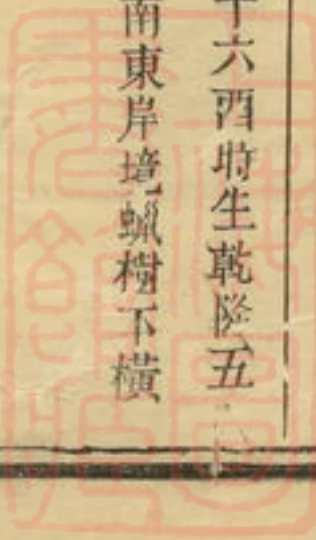 十六酉時生乾隆五
南東岸境蝋樹下橫